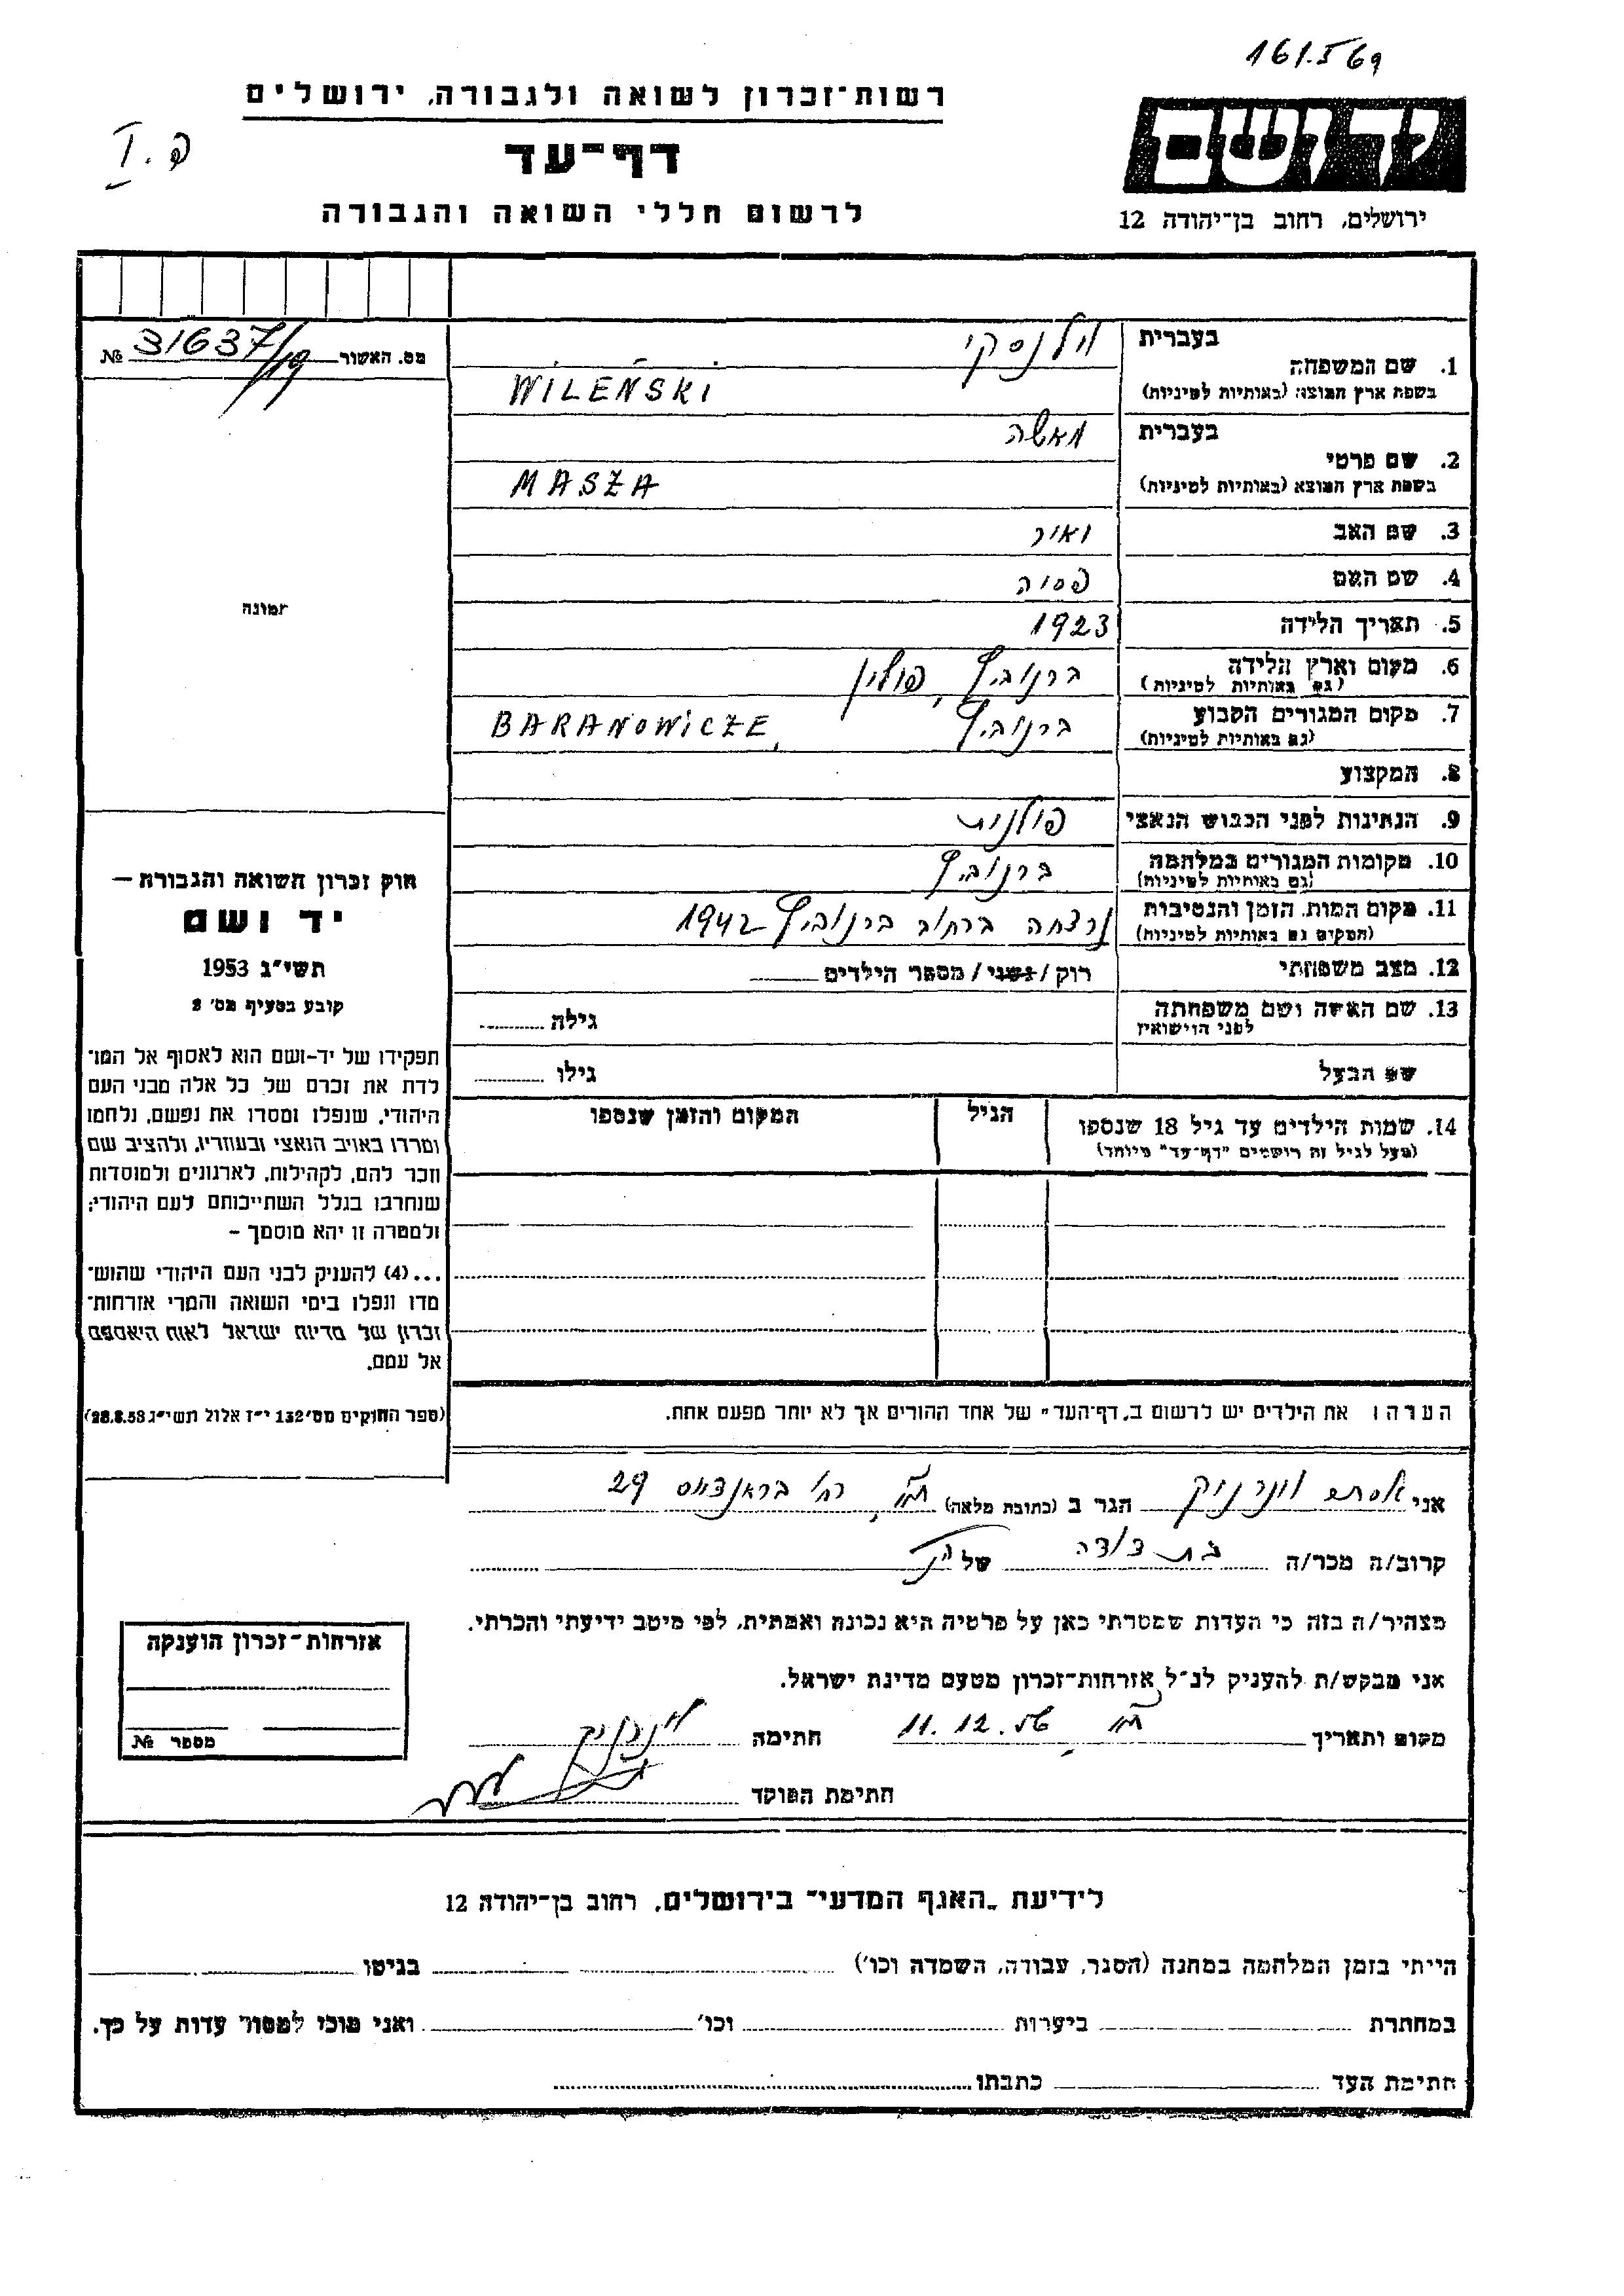 161.I 69
רשות־זכרון לשואה ולגבורה, ירושלים
דף־עד
לרשום חללי השואה והגבורה
פ. I
יד ושם
ירושלים, רחוב בן־יהודה 12
מס. האשור 31637/19 №
בעברית וילנסקי
1. שם המשפחה
בשפת ארץ המוצא (באותיות לטיניות) WILEŃSKI
בעברית מאשה
2. שם פרטי
בשפת ארץ המוצא (באותיות לטיניות) MASZA
3. שם האב
4. שם האם פסיה
5. תאריך הלידה 1923
6. מקום וארץ הלידה ברנוביץ, פולין
(גם באותיות לטיניות)
7. מקום המגורים הקבוע ברנוביץ, BARANOWICZE
(גם באותיות לטיניות)
8. המקצוע
9. הנתינות לפני הכבוש הנאצי פולנית
10. מקומות המגורים במלחמה ברנוביץ
(גם באותיות לטיניות)
11. מקום המות, הזמן והנסיבות נרצחה ברחוב ברנוביץ 1942
(המקום גם באותיות לטיניות)
12. מצב משפחתי רוק / נשוי / מספר הילדים
13. שם האשה ושם משפחתה גילה
לפני הנישואין
שם הבעל גילו
14. שמות הילדים עד גיל 18 שנספו הגיל המקום והזמן שנספו
(מעל לגיל זה רושמים "דף־עד" מיוחד)
הערה: את הילדים יש לרשום ב„דף־העד" של אחד ההורים אך לא יותר מפעם אחת.
תמונה
חוק זכרון השואה והגבורה —
יד ושם
תשי"ג 1953
קובע בסעיף מס' 2
תפקידו של יד-ושם הוא לאסוף אל המו־
לדת את זכרם של כל אלה מבני העם
היהודי, שנפלו ומסרו את נפשם, נלחמו
ומרדו באויב הנאצי ובעוזריו, ולהציב שם
וזכר להם, לקהילות, לארגונים ולמוסדות
שנחרבו בגלל השתייכותם לעם היהודי;
ולמטרה זו יהא מוסמך –
...(4) להעניק לבני העם היהודי שהוש־
מדו ונפלו בימי השואה והמרי אזרחות־
זכרון של מדינת ישראל לאות היאספם
אל עמם.
(ספר החוקים מס' 132 י"ז אלול תשי"ג 28.8.53)
אני אסתר הגר ב (כתובת מלאה) ת"א, רח' 29
קרוב/ה מכר/ה בת דודה של הנ"ל
מצהיר/ה בזה כי העדות שמסרתי כאן על פרטיה היא נכונה ואמתית, לפי מיטב ידיעתי והכרתי.
אני מבקש/ת להעניק לנ"ל אזרחות־זכרון מטעם מדינת ישראל.
מקום ותאריך ת"א, 11.12.56 חתימה
חתימת הפוקד
אזרחות־זכרון הוענקה
מספר №
לידיעת „האגף המדעי" בירושלים, רחוב בן־יהודה 12
הייתי בזמן המלחמה במחנה (הסגר, עבודה, השמדה וכו') בגיטו
במחתרת ביערות וכו' ואני מוכן למסור עדות על כך.
חתימת העד כתבתו